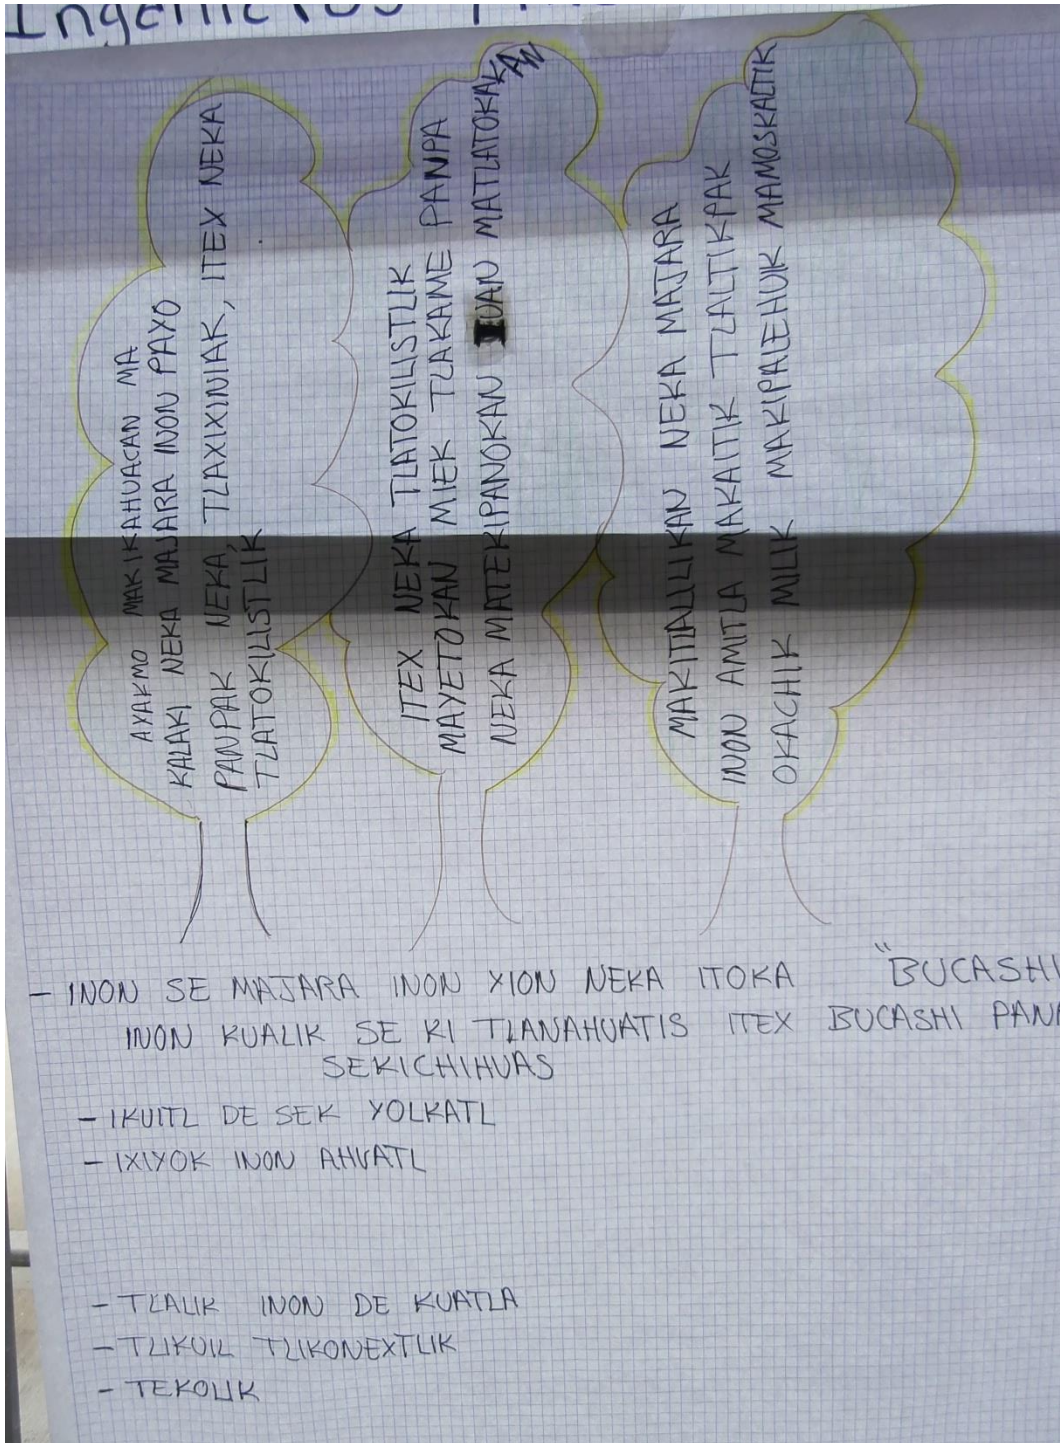 AYAKMO MAKIKAHUACAN MA
KALAKI NEKA MAJARA INON PAXO
PANPAK NEKA, TLAXIXINIAK, ITEX NEKA
TLATOKILISTLIK
ITEX NEKA TLATOKILISTLIK
MAYETOKAN MIEK TLAKAME PANPA
NEKA MATEKIPANOKAN IUAN MATLATOKAKAN
MAKITIALILIKAN NEKA MAJARA
INON AMITLA MAKAITIK TLALTIKPAK
OKACHIK MILIK MAKIPALEHUIK MAMOSKALTIK
- INON SE MAJARA INON XION NEKA ITOKA "BUCASHI
INON KUALIK SE KI TLANAHUATIS ITEX BUCASHI
SEKICHIHUAS
- IKUITL DE SEK YOLKATL
- IXIYOK INON AHUATL
- TLALIK INON DE KUATLA
- TLIKUIL TLIKONEXTLIK
- TEKOLIK